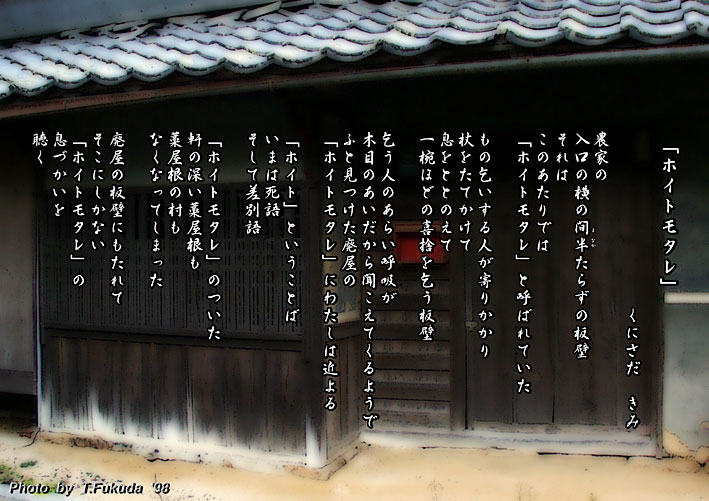 「ホイトモタレ」
くにさだ　きみ
農家の
入口の横の間半たらずの板壁
それは
このあたりでは
「ホイトモタレ」と呼ばれていた
もの乞いする人が寄りかかり
杖をたてかけて
息をととのえて
一椀ほどの喜捨を乞う板壁
乞う人のあらい呼吸が
木目のあいだから聞こえてくるようで
ふと見つけた廃屋の
「ホイトモタレ」にわたしは近よる
「ホイト」ということば
いまは死語
そして差別語
「ホイトモタレ」のついた
軒の深い藁屋根も
藁屋根の村も
なくなってしまった
廃屋の板壁にもたれて
そこにしかない
「ホイトモタレ」の
息づかいを
聴く
Photo by T.Fukuda '98